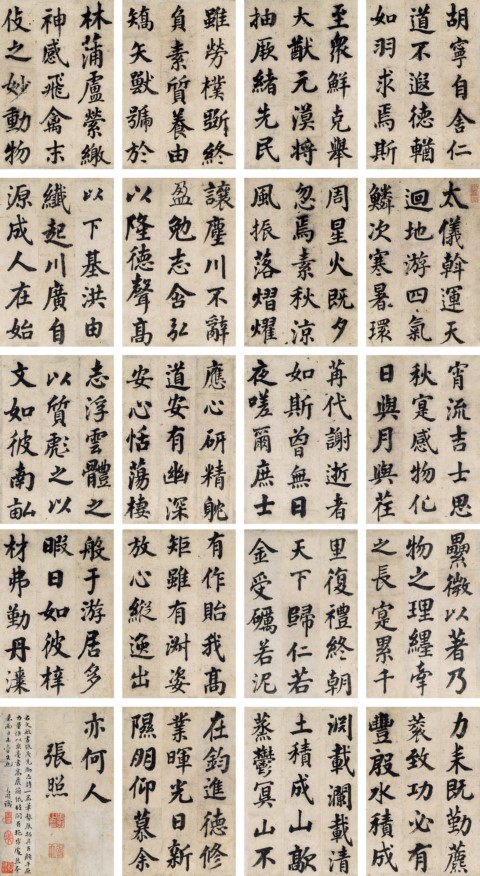 胡寧自舍仁
道不遐德輶
如羽求焉斯
至衆鮮克舉
大猷元漠將
抽厥緒先民
雖勞樸斲終
負素質養由
矯矢獸號於
林蒲盧縈繳
神感飛禽末
伎之妙動物
太儀斡運天
迴地游四氣
鱗次寒暑環
周星火既夕
忽焉素秋涼
風振落熠燿
讓塵川不辭
盈勉志含弘
以隆德聲高
以下基洪由
纖起川廣自
源成人在始
宵流吉士思
秋寔感物化
日與月與荏
苒代謝逝者
如斯曾無日
夜嗟爾庶士
應心研精耽
道安有幽深
安心恬蕩棲
志浮雲體之
以質彪之以
文如彼南畝
纍微以著乃
物之理纆牽
之長寔累千
里復禮終朝
天下歸仁若
金受礪若泥
有作貽我高
矩雖有淑姿
放心縱逸出
般于游居多
暇日如彼梓
材弗勤丹漆
力耒既勤藨
蓘致功必有
豐殷水積成
淵載瀾載清
土積成山歊
蒸鬱冥山不
在鈞進德修
業暉光日新
隰朋仰慕余
亦何人
張照